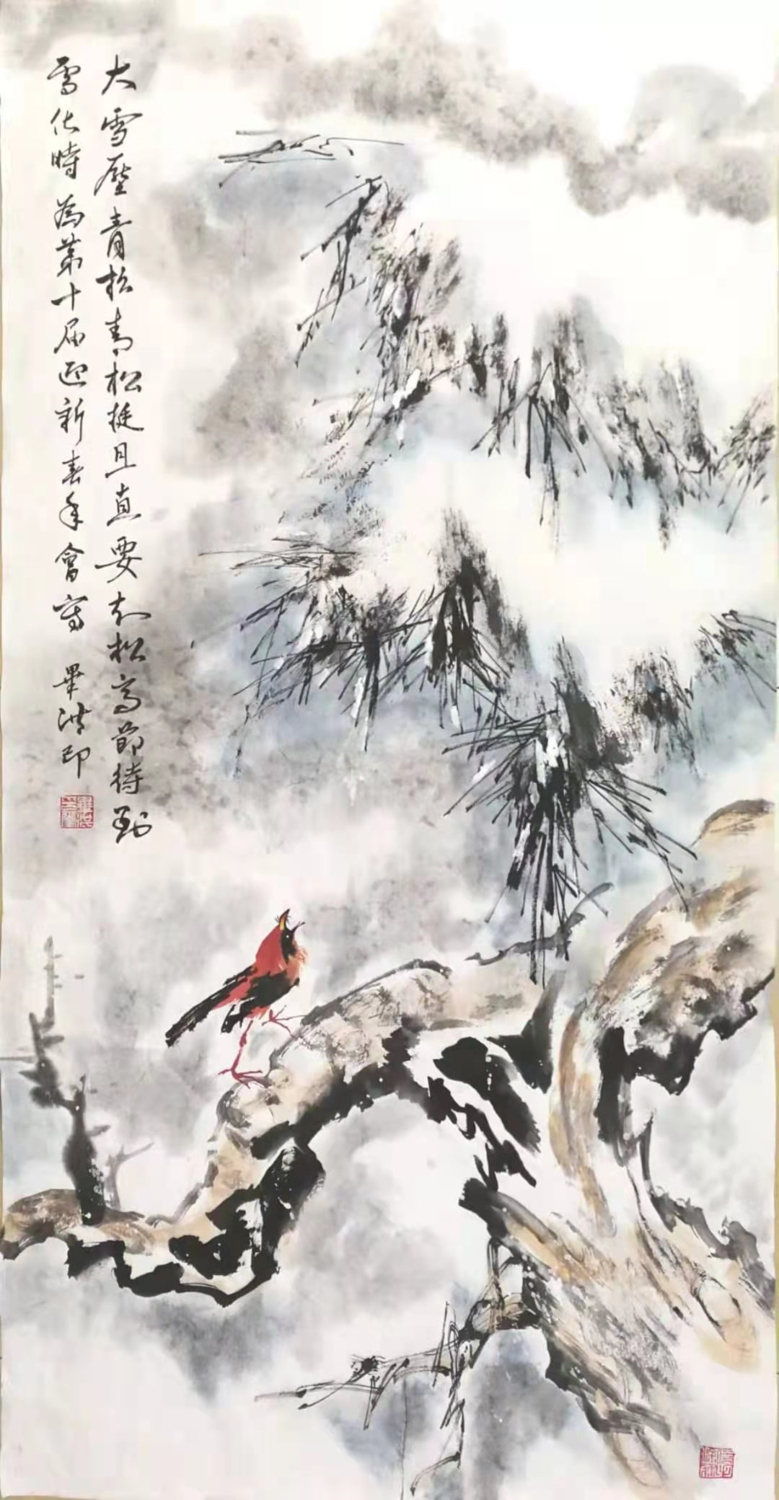 大雪壓青松青松挺且直要知松高節待到
雪化時為第十届迎新春年會寫 畢洪印